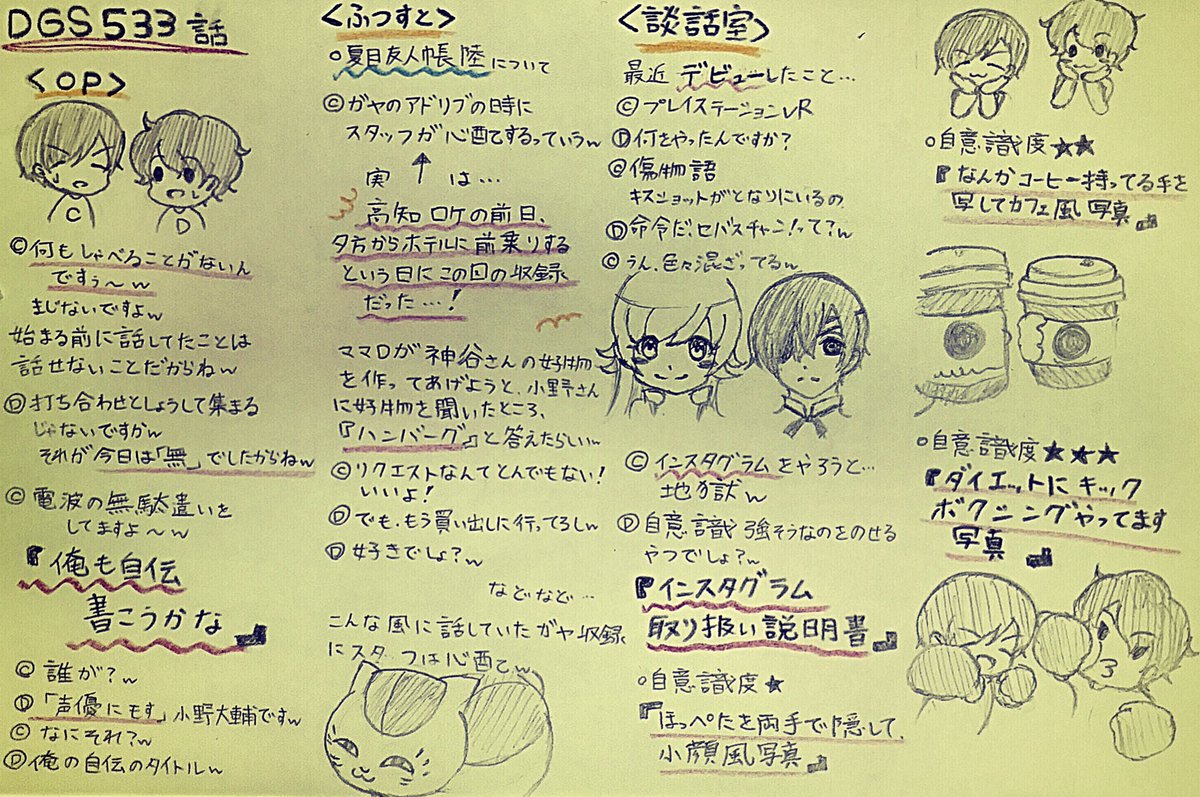 DGS 533 話
<OP>
C
D
Ⓒ何もしゃべることがないん
ですぅ〜w
まじないですよw
始まる前に話してたことは
話せないことだからねw
Ⓓ打ち合わせとしょうして集まる
じゃないですかw
それが今日は「無」でしたからねw
Ⓒ電波の無駄遣いを
してますよ〜w
『俺も自伝
書こうかな』
Ⓒ誰が?w
Ⓓ「声優にもす」小野大輔ですw
Ⓒなにそれ?w
Ⓓ俺の自伝のタイトルw
<ふつすと>
○夏目友人帳陸について
Ⓒガヤのアドリブの時に
スタッフが心配するっていうw
↑
実は…
高知ロケの前日、
夕方からホテルに前乗りする
という日にこの回の収録
だった…!
ママDが神谷さんの好物
を作ってあげようと、小野さん
に好物を聞いたところ、
『ハンバーグ』と答えたらしいw
Ⓒリクエストなんてとんでもない!
いいよ!
Ⓓでも、もう買い出しに行ってるしw
Ⓓ好きでしょ?w
などなど…
こんな風に話していたガヤ収録
にスタッフは心配w
<談話室>
最近デビューしたこと…
ⒸプレイステーションVR
Ⓓ何をやったんですか?
Ⓒ傷物語
キスショットがとなりにいるの
Ⓓ命令だ!セバスチャン!って?w
Ⓒうん、色々混ざってるw
Ⓒインスタグラムをやろうと…
地獄w
Ⓓ自意識強そうなのをのせる
やつでしょ?w
『インスタグラム
取り扱い説明書』
○自意識度★
『ほっぺたを両手で隠して、
小顔風写真』
○自意識度★★
『なんかコーヒー持ってる手を
写してカフェ風写真』
○自意識度★★★
『ダイエットにキック
ボクシングやってます
写真』